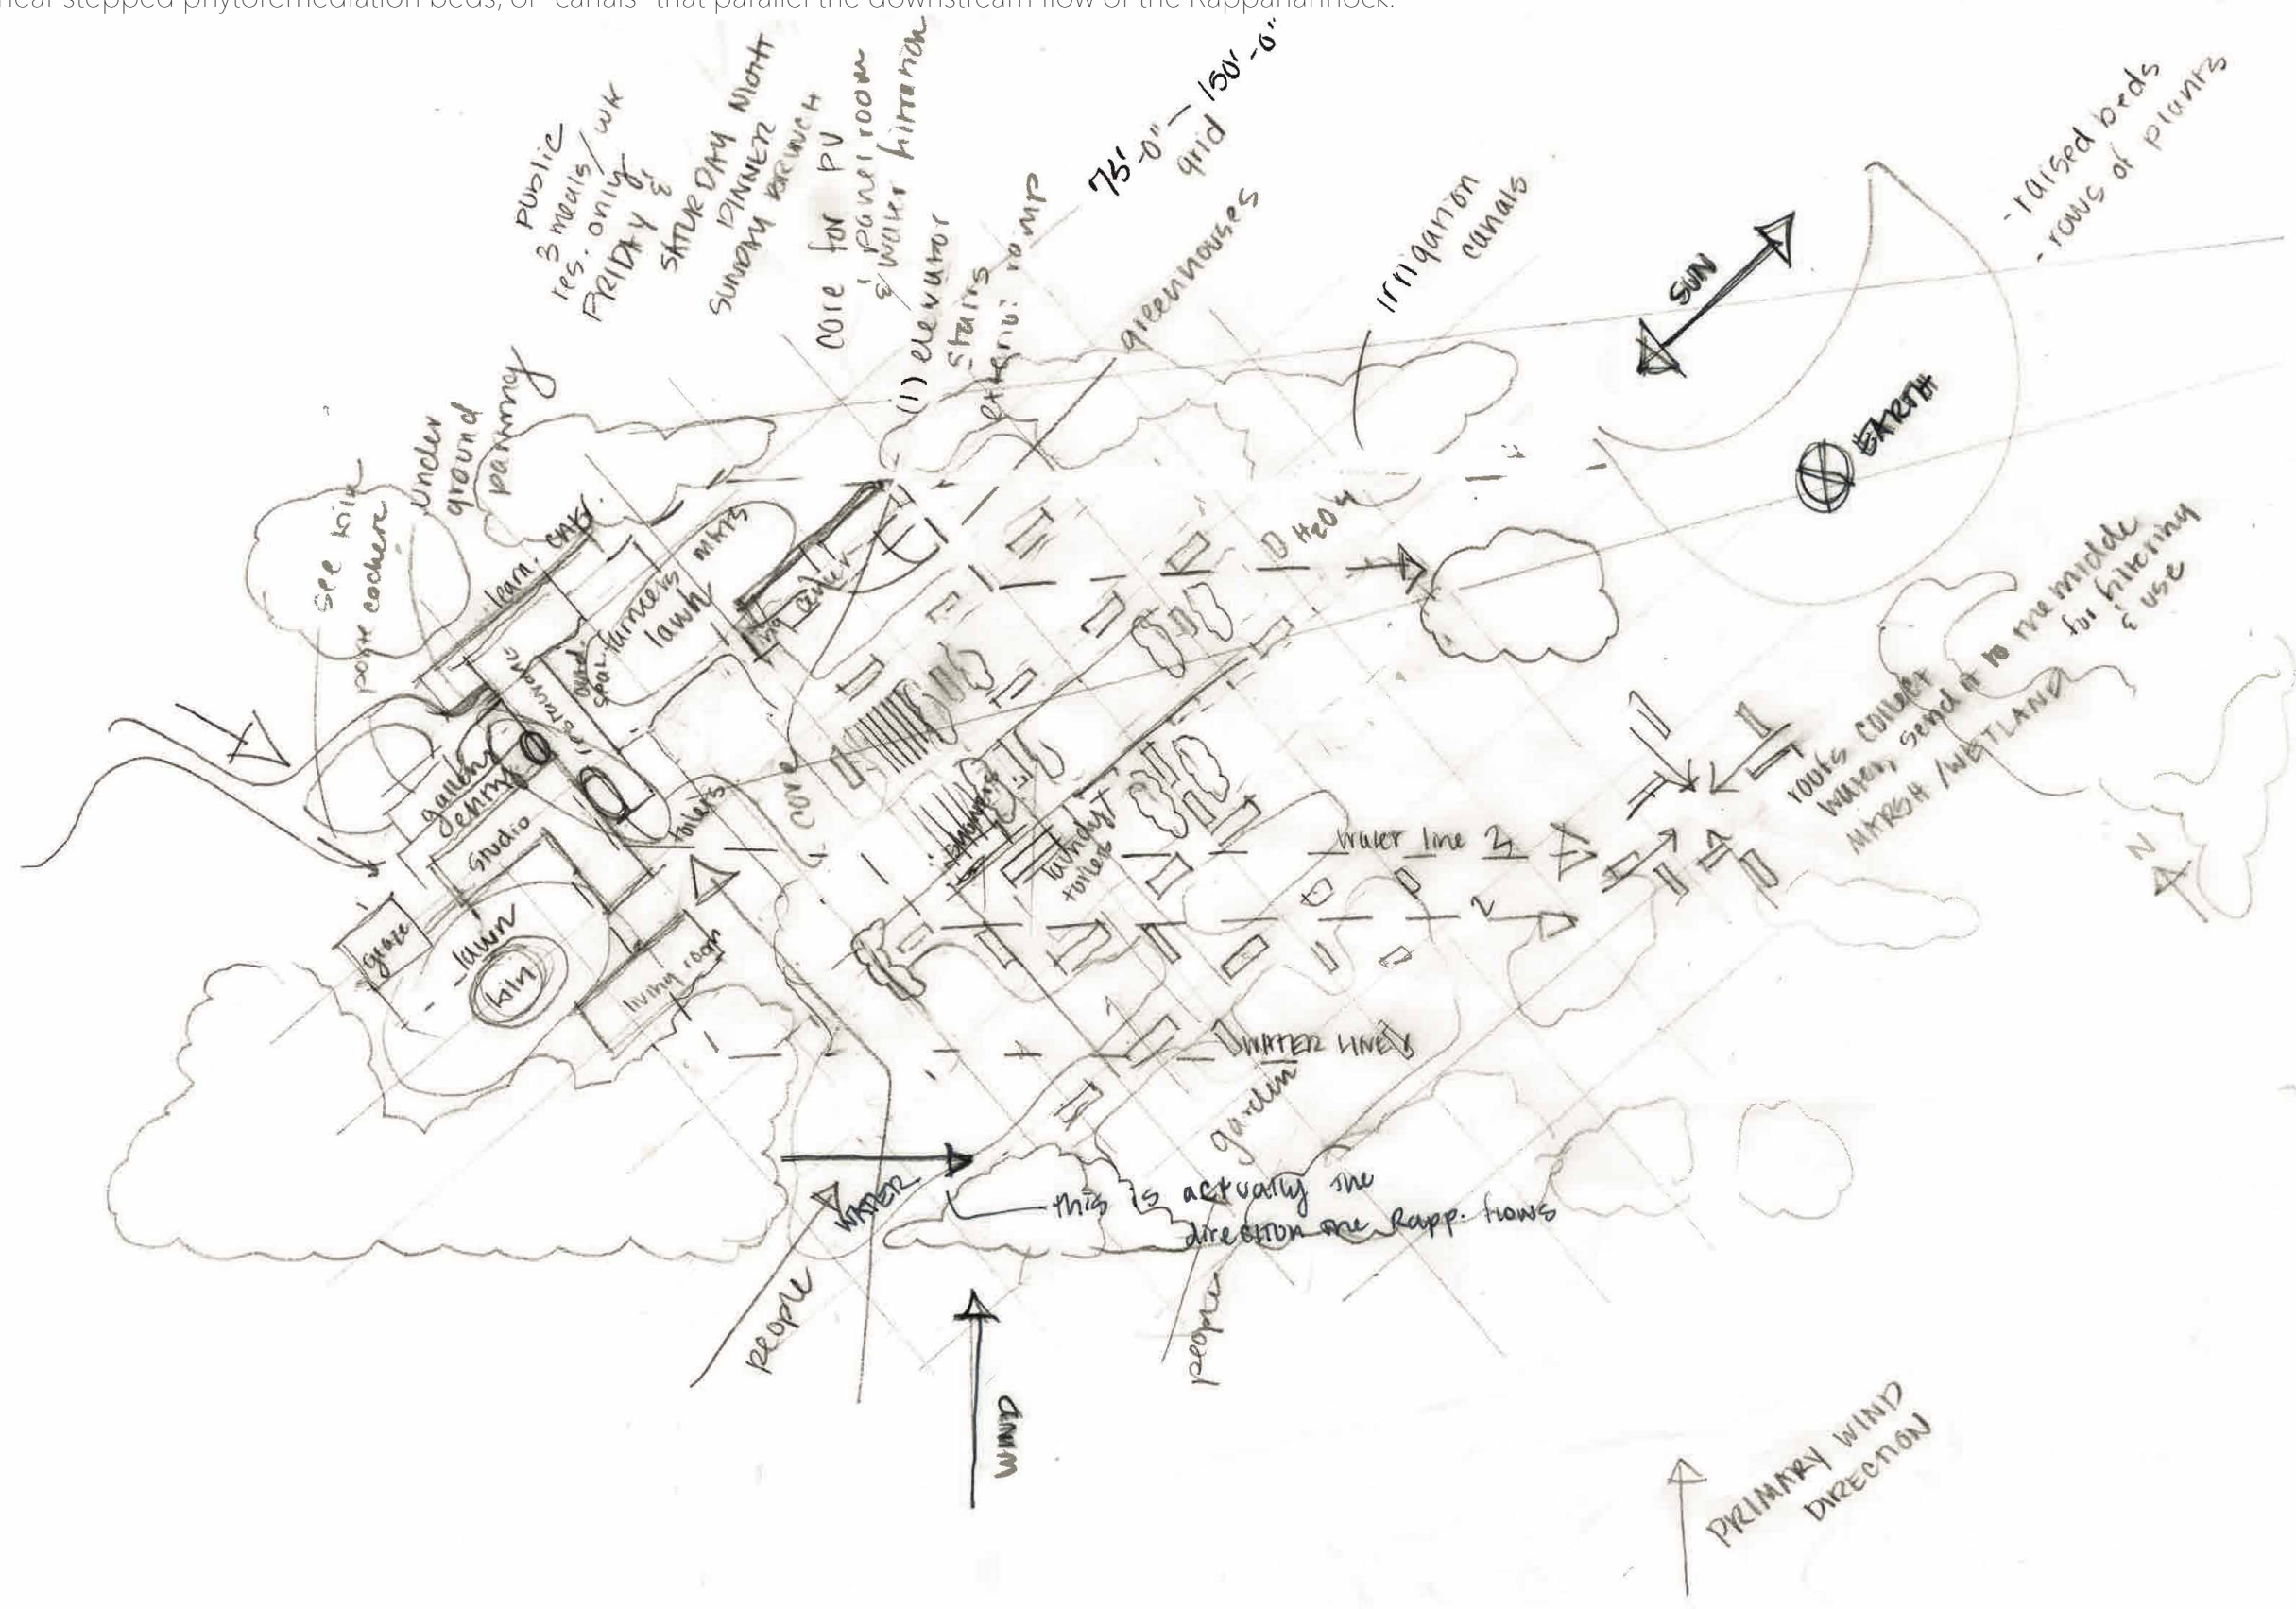 near stepped phytoremediation beds, or "canals" that parallel the downstream flow of the Rappahannock.
PUBLIC
3 meals/wk
res. only
FRIDAY &
SATURDAY NIGHT
DINNER
SUNDAY BRUNCH
core for PV
& panel room
& water filtration
(1) elevator
stairs
exterior ramp
75'-0" – 150'-0"
grid
greenhouses
irrigation
canals
SUN
EARTH
- raised beds
- rows of plants
under
ground
parking
see kiln
porte cochere
learn. cntr.
farmers mkts
lawn
H2O 4
gallery
entry
studio
toilets
core
glaze
lawn
kiln
living room
laundry
toilets
water line 3
2
WATER LINE
garden
roofs collect
water, send it to the middle
for filtering
& use
MARSH / WETLAND
N
WATER
this is actually the
direction the Rapp. flows
people
people
WIND
PRIMARY WIND
DIRECTION